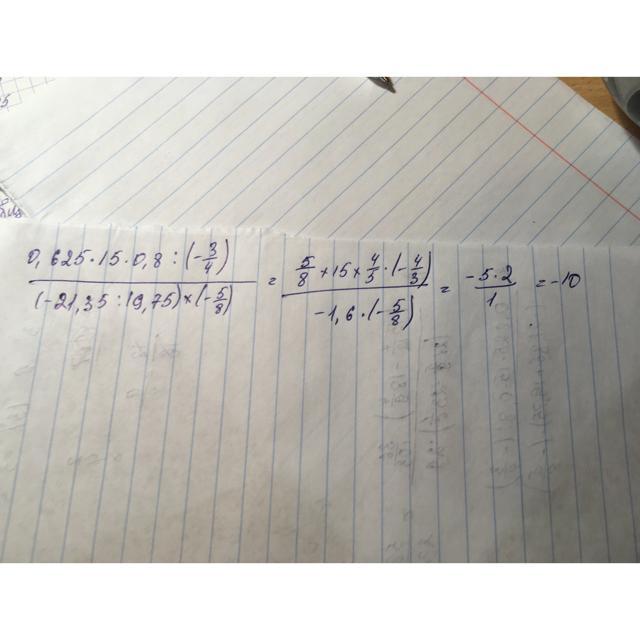 0,625·15·0,8:(-3/4) / (-21,35:19,75)×(-5/8) = 5/8×15×4/5·(-4/3) / -1,6·(-5/8) = -5·2/1 = -10